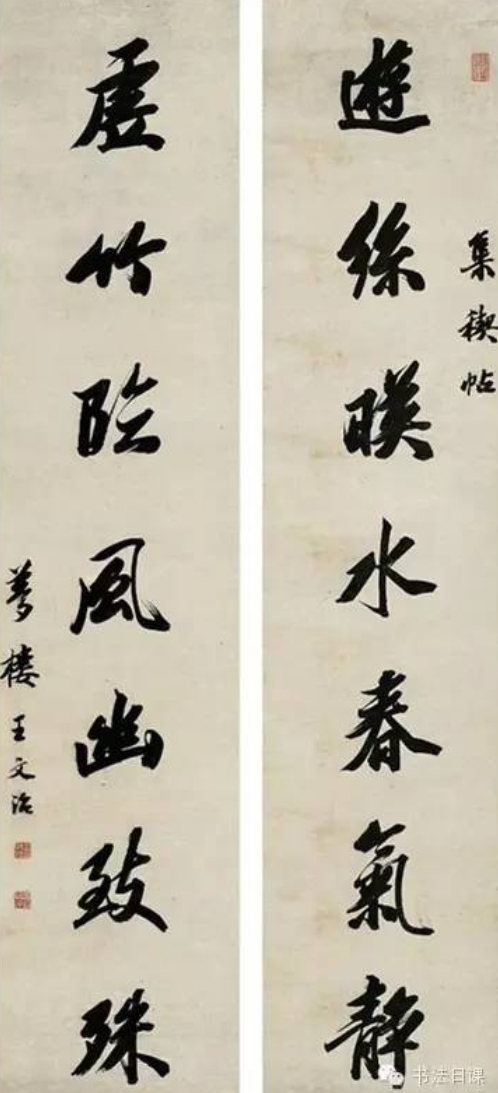 集禊帖
遊絲暎水春氣靜
虛竹臨風幽致殊
夢樓王文治
书法日课